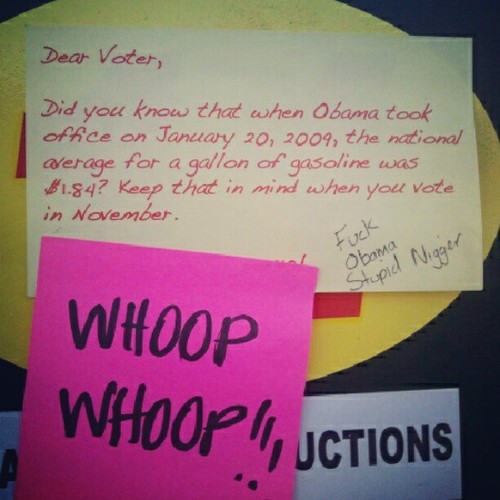 Dear Voter,
Did you know that when Obama took
office on January 20, 2009, the national
average for a gallon of gasoline was
$1.84? Keep that in mind when you vote
in November.
Fuck
Obama
Stupid Nigger
WHOOP
WHOOP!!,
UCTIONS